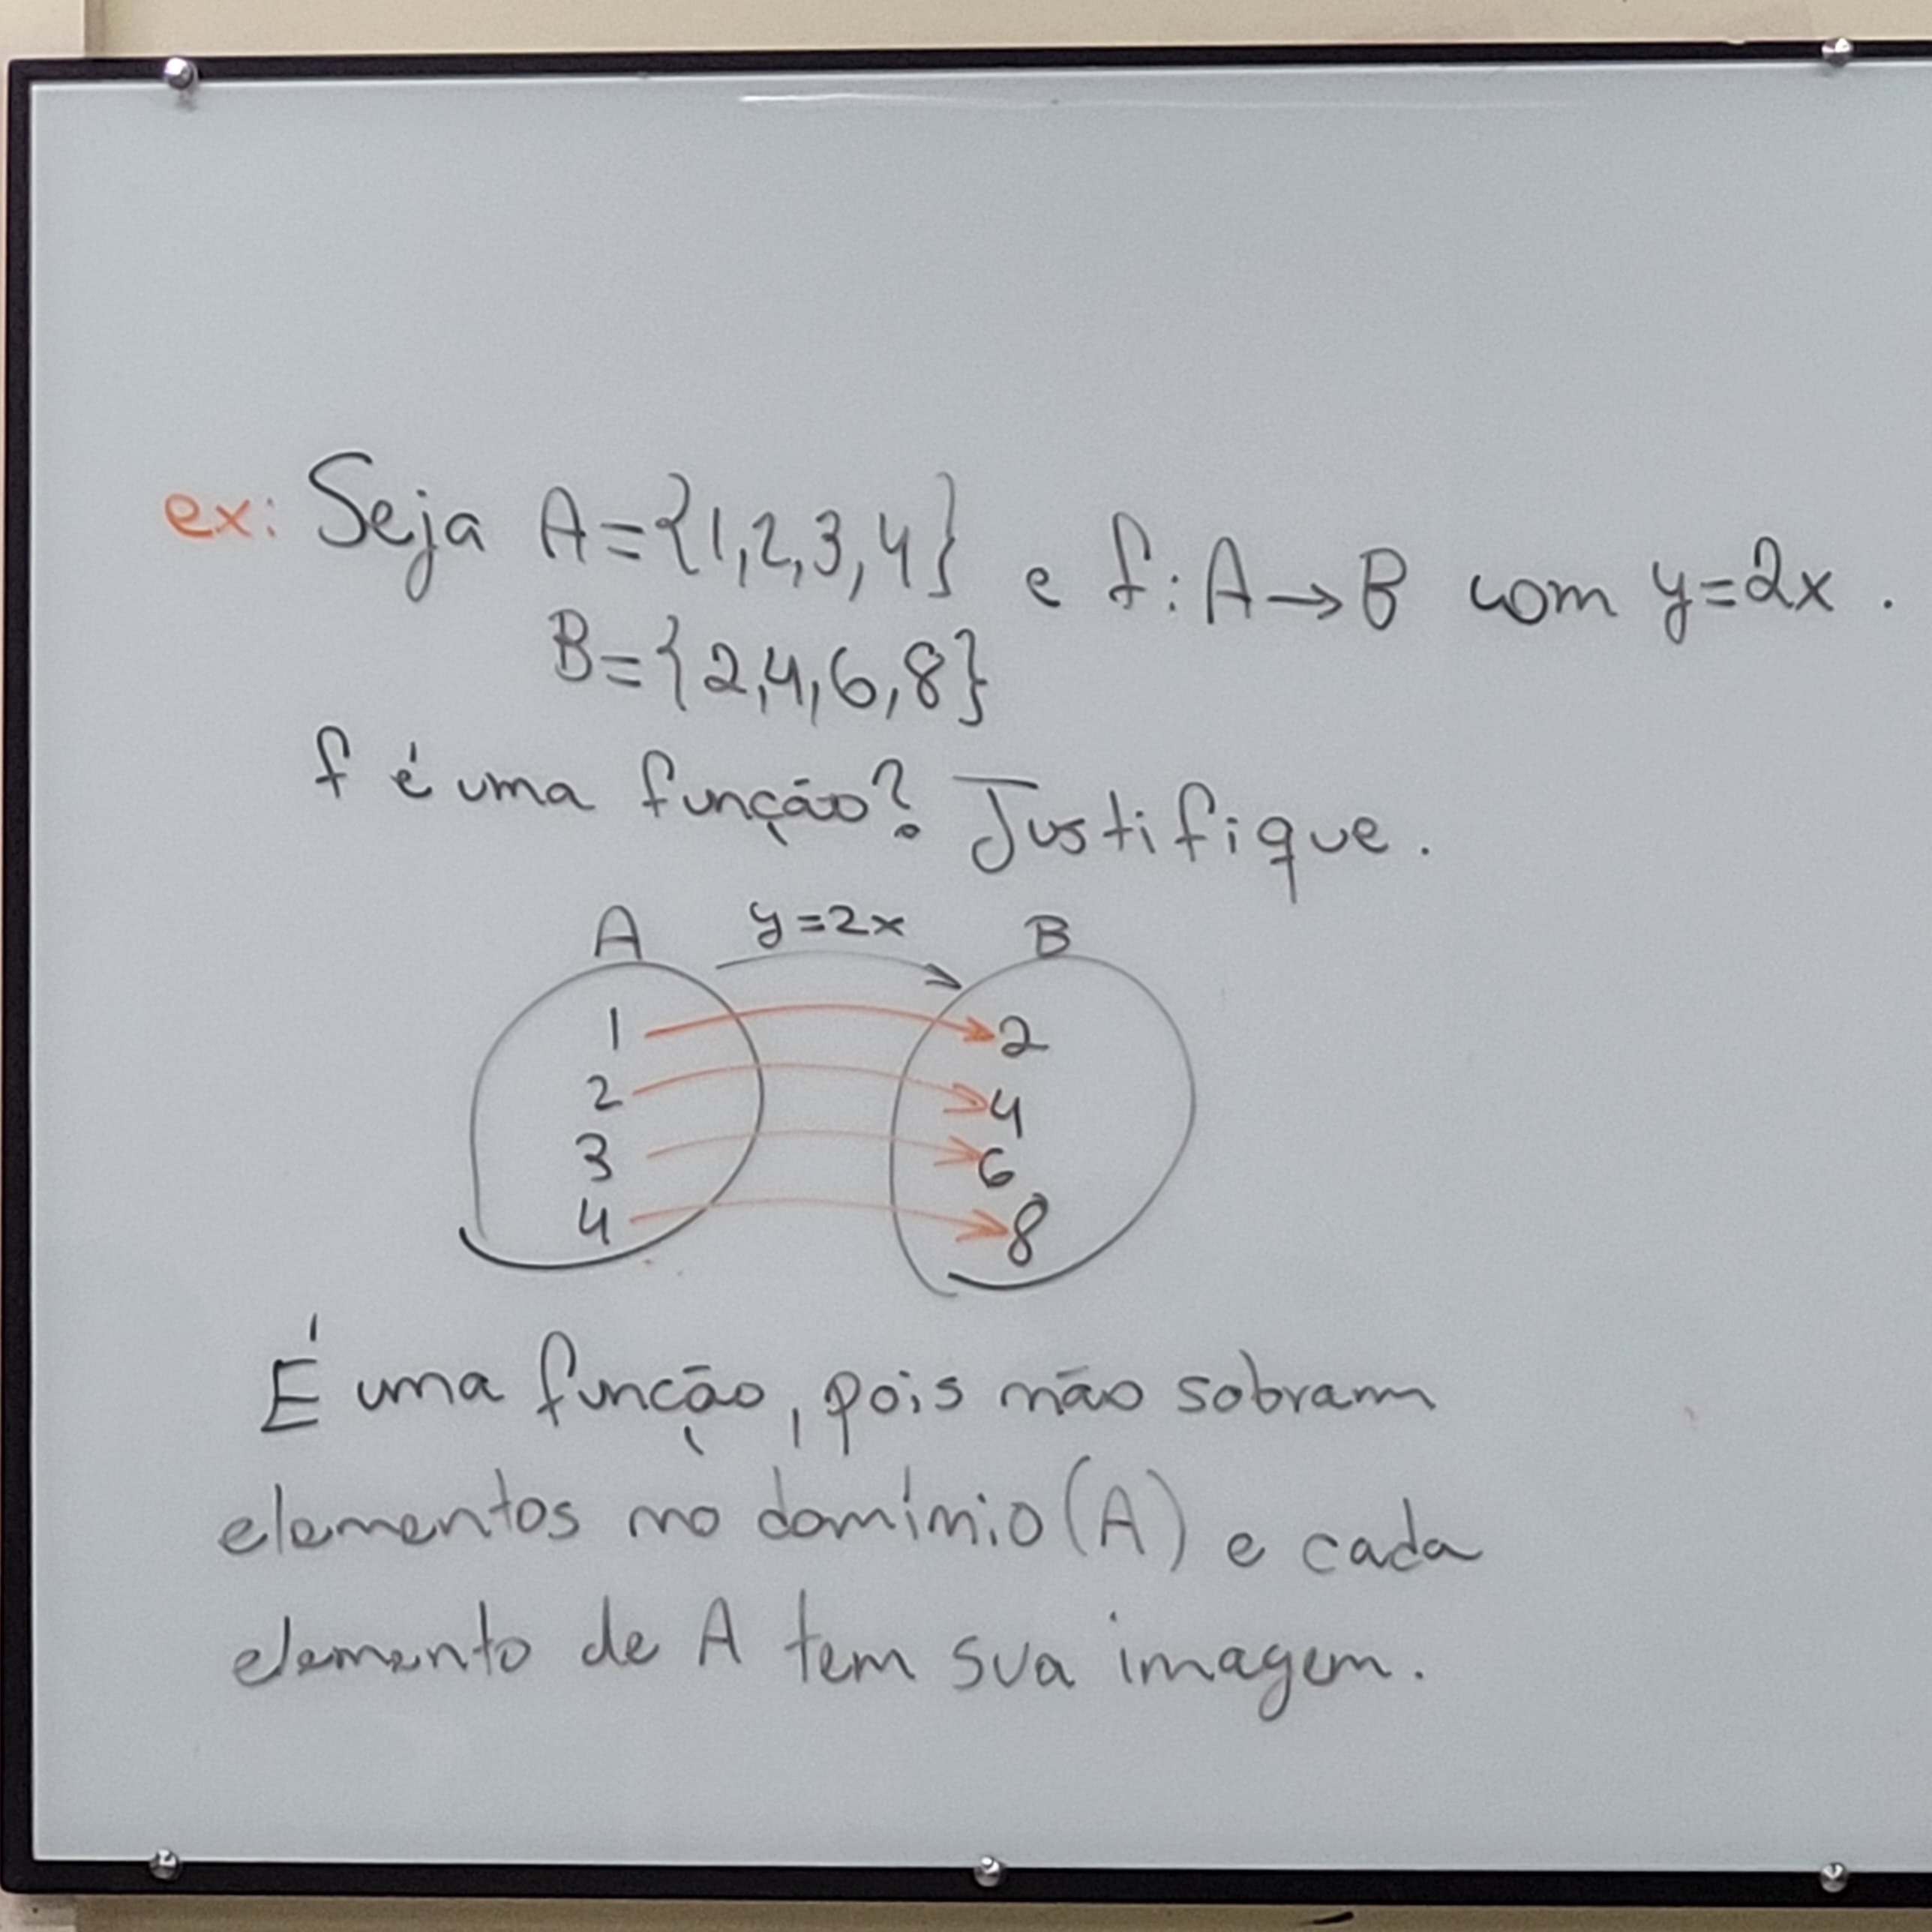 ex: Seja A={1,2,3,4} e f:A→B com y=2x.
B={2,4,6,8}
f é uma função? Justifique.
A y=2x B
1 2
2 4
3 6
4 8
É uma função, pois não sobram
elementos no domínio (A) e cada
elemento de A tem sua imagem.